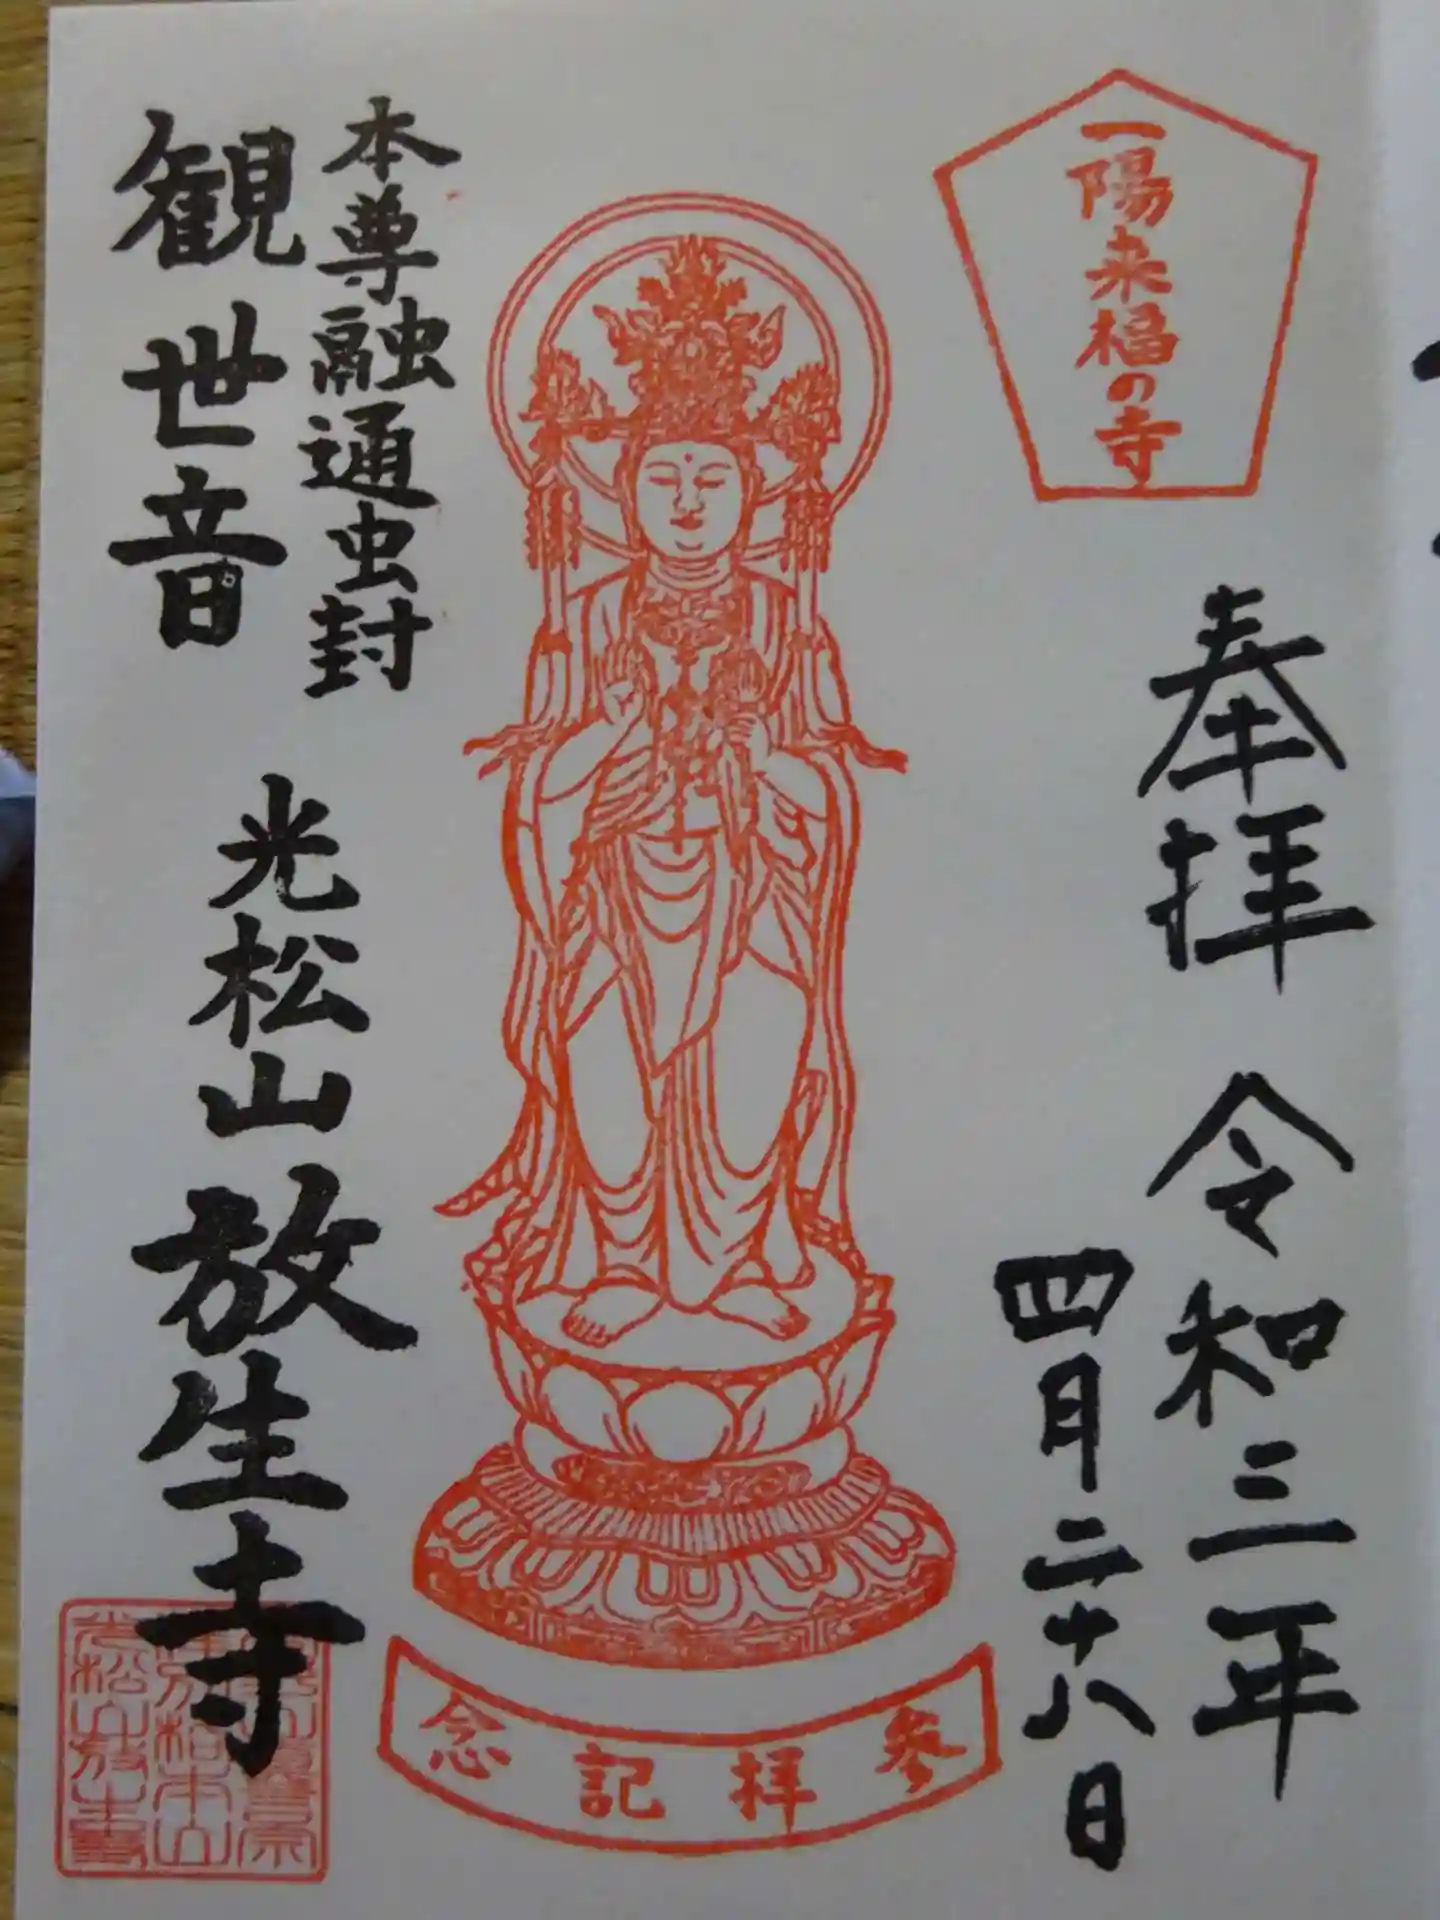 一陽来福の寺
奉拝 令和三年
四月二十八日
本尊融通虫封
観世音
光松山放生寺
参拝記念